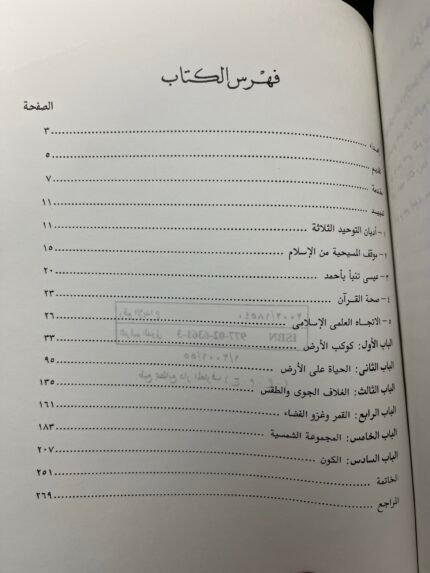 فهرس الكتاب
الصفحة
إهداء ........ ٣
تقديم ........ ٥
مقدمة ........ ٧
تمهيد ........ ١١
١ - أديان التوحيد الثلاثة ........ ١١
٢ - موقف المسيحية من الإسلام ........ ١٥
٣ - عيسى تنبأ بأحمد ........ ٢٠
٤ - صحة القرآن ........ ٢٣
٥ - الاتجاه العلمى الإسلامى ........ ٢٦
الباب الأول: كوكب الأرض ........ ٣٣
الباب الثانى: الحياة على الأرض ........ ٩٥
الباب الثالث: الغلاف الجوى والطقس ........ ١٣٥
الباب الرابع: القمر وغزو الفضاء ........ ١٦١
الباب الخامس: المجموعة الشمسية ........ ١٨٣
الباب السادس: الكون ........ ٢٠٧
الخاتمة ........ ٢٥١
المراجع ........ ٢٦٩
ISBN 977-02-6361-3